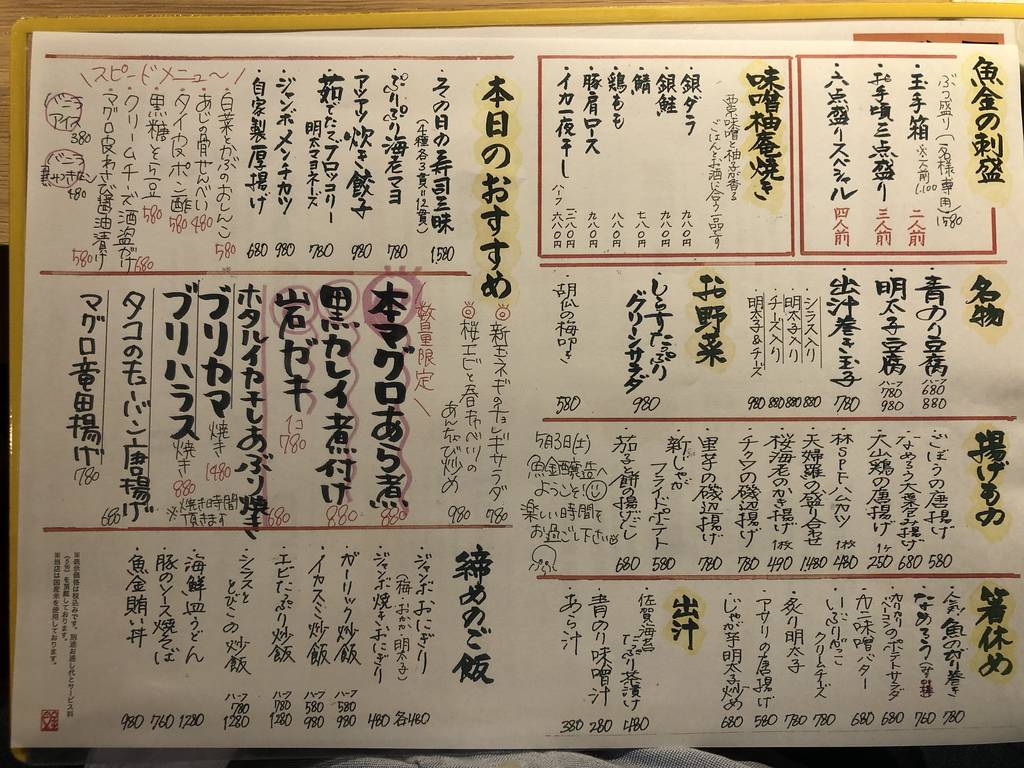 魚金の刺盛
ぶつ盛り(一名様専用) 1580
・玉手箱 二人前
・お手頃三点盛り 三人前
・六点盛りスペシャル 四人前
味噌柚庵焼き
西京味噌と柚子が香る
ごはんもお酒に合う一品です
・銀ダラ 九八〇円
・銀鮭 九八〇円
・鯖 七八〇円
・鶏もも 八八〇円
・豚肩ロース 一三八〇円
・イカ一夜干し ハーフ六八〇円
本日のおすすめ
・その日の寿司三昧 1580
(4種各3貫=12貫)
・ぷりぷり海老マヨ 780
・アツアツ炊き餃子 980
・茹でたてブロッコリー
明太マヨネーズ 780
・ジャンボメンチカツ 980
・自家製厚揚げ 680
\スピードメニュー/
・白菜とカブのおしんこ 580
・あじの骨せんべい 480
・タイ皮ポン酢 580
・黒糖そら豆 580
・クリームチーズ酒盗がけ 680
・マグロ皮わさび醤油漬け 580
バニラアイス 380
名物
・青のり豆腐 ハーフ680 880
・明太子豆腐 ハーフ780 980
・出汁巻き玉子 780
・シラス入り 880
・明太子入り 880
・チーズ入り 880
・明太子&チーズ 980
お野菜
・しらすたっぷり
グリーンサラダ 980
・胡瓜の梅叩き 580
新玉ネギのチョレギサラダ 780
桜エビと春キャベツの
あんちょび炒め 980
\数量限定/
本マグロあら煮 880
黒カレイ煮付け 880
岩ガキ 1コ780
ホタルイカ干しあぶり焼き 680
ブリカマ焼き 1480
ブリハラス焼き 880
※焼き時間頂きます
タコのチューバン唐揚げ 680
マグロ竜田揚げ 780
揚げもの
・ごぼうの唐揚げ 580
・なめろう大葉包み揚げ 680
・大山鶏の唐揚げ 1ヶ250
・林SPFハムカツ 1枚480
・天婦羅の盛り合わせ 1480
・桜海老のかき揚げ 1枚490
・チクワの磯辺揚げ 780
・里芋の磯辺揚げ 780
・新じゃが
フライドポテト 580
・茄子と餅の揚げだし 680
5月3日(土)
魚金醸造へ
ようこそ!
楽しい時間を
お過ごし下さい
箸休め
・人気!魚のガリ巻き 780
・なめろう 760
・カリカリベーコンのポテトサラダ 680
・カニ味噌バター 680
・いぶりがっこ
クリームチーズ 780
・炙り明太子 780
・アサリの唐揚げ 580
・じゃが芋明太子炒め 680
出汁
・佐賀海苔
たっぷり茶漬け 480
・青のり味噌汁 280
・あら汁 380
締めのご飯
・ジャンボおにぎり 各480
(梅・おかか・明太子)
・ジャンボ焼きおにぎり 480
・ガーリック炒飯 ハーフ580 980
・イカスミ炒飯 ハーフ580 980
・エビたっぷり炒飯 ハーフ780 1280
・シラスと
とびこの炒飯 ハーフ780 1280
・海鮮皿うどん 1280
・豚のソース焼そば 760
・魚金賄い丼 980
※表示価格は税込みです。別途お通し代とサービス料
を頂戴しております。
※当店は国産米を使用しております。